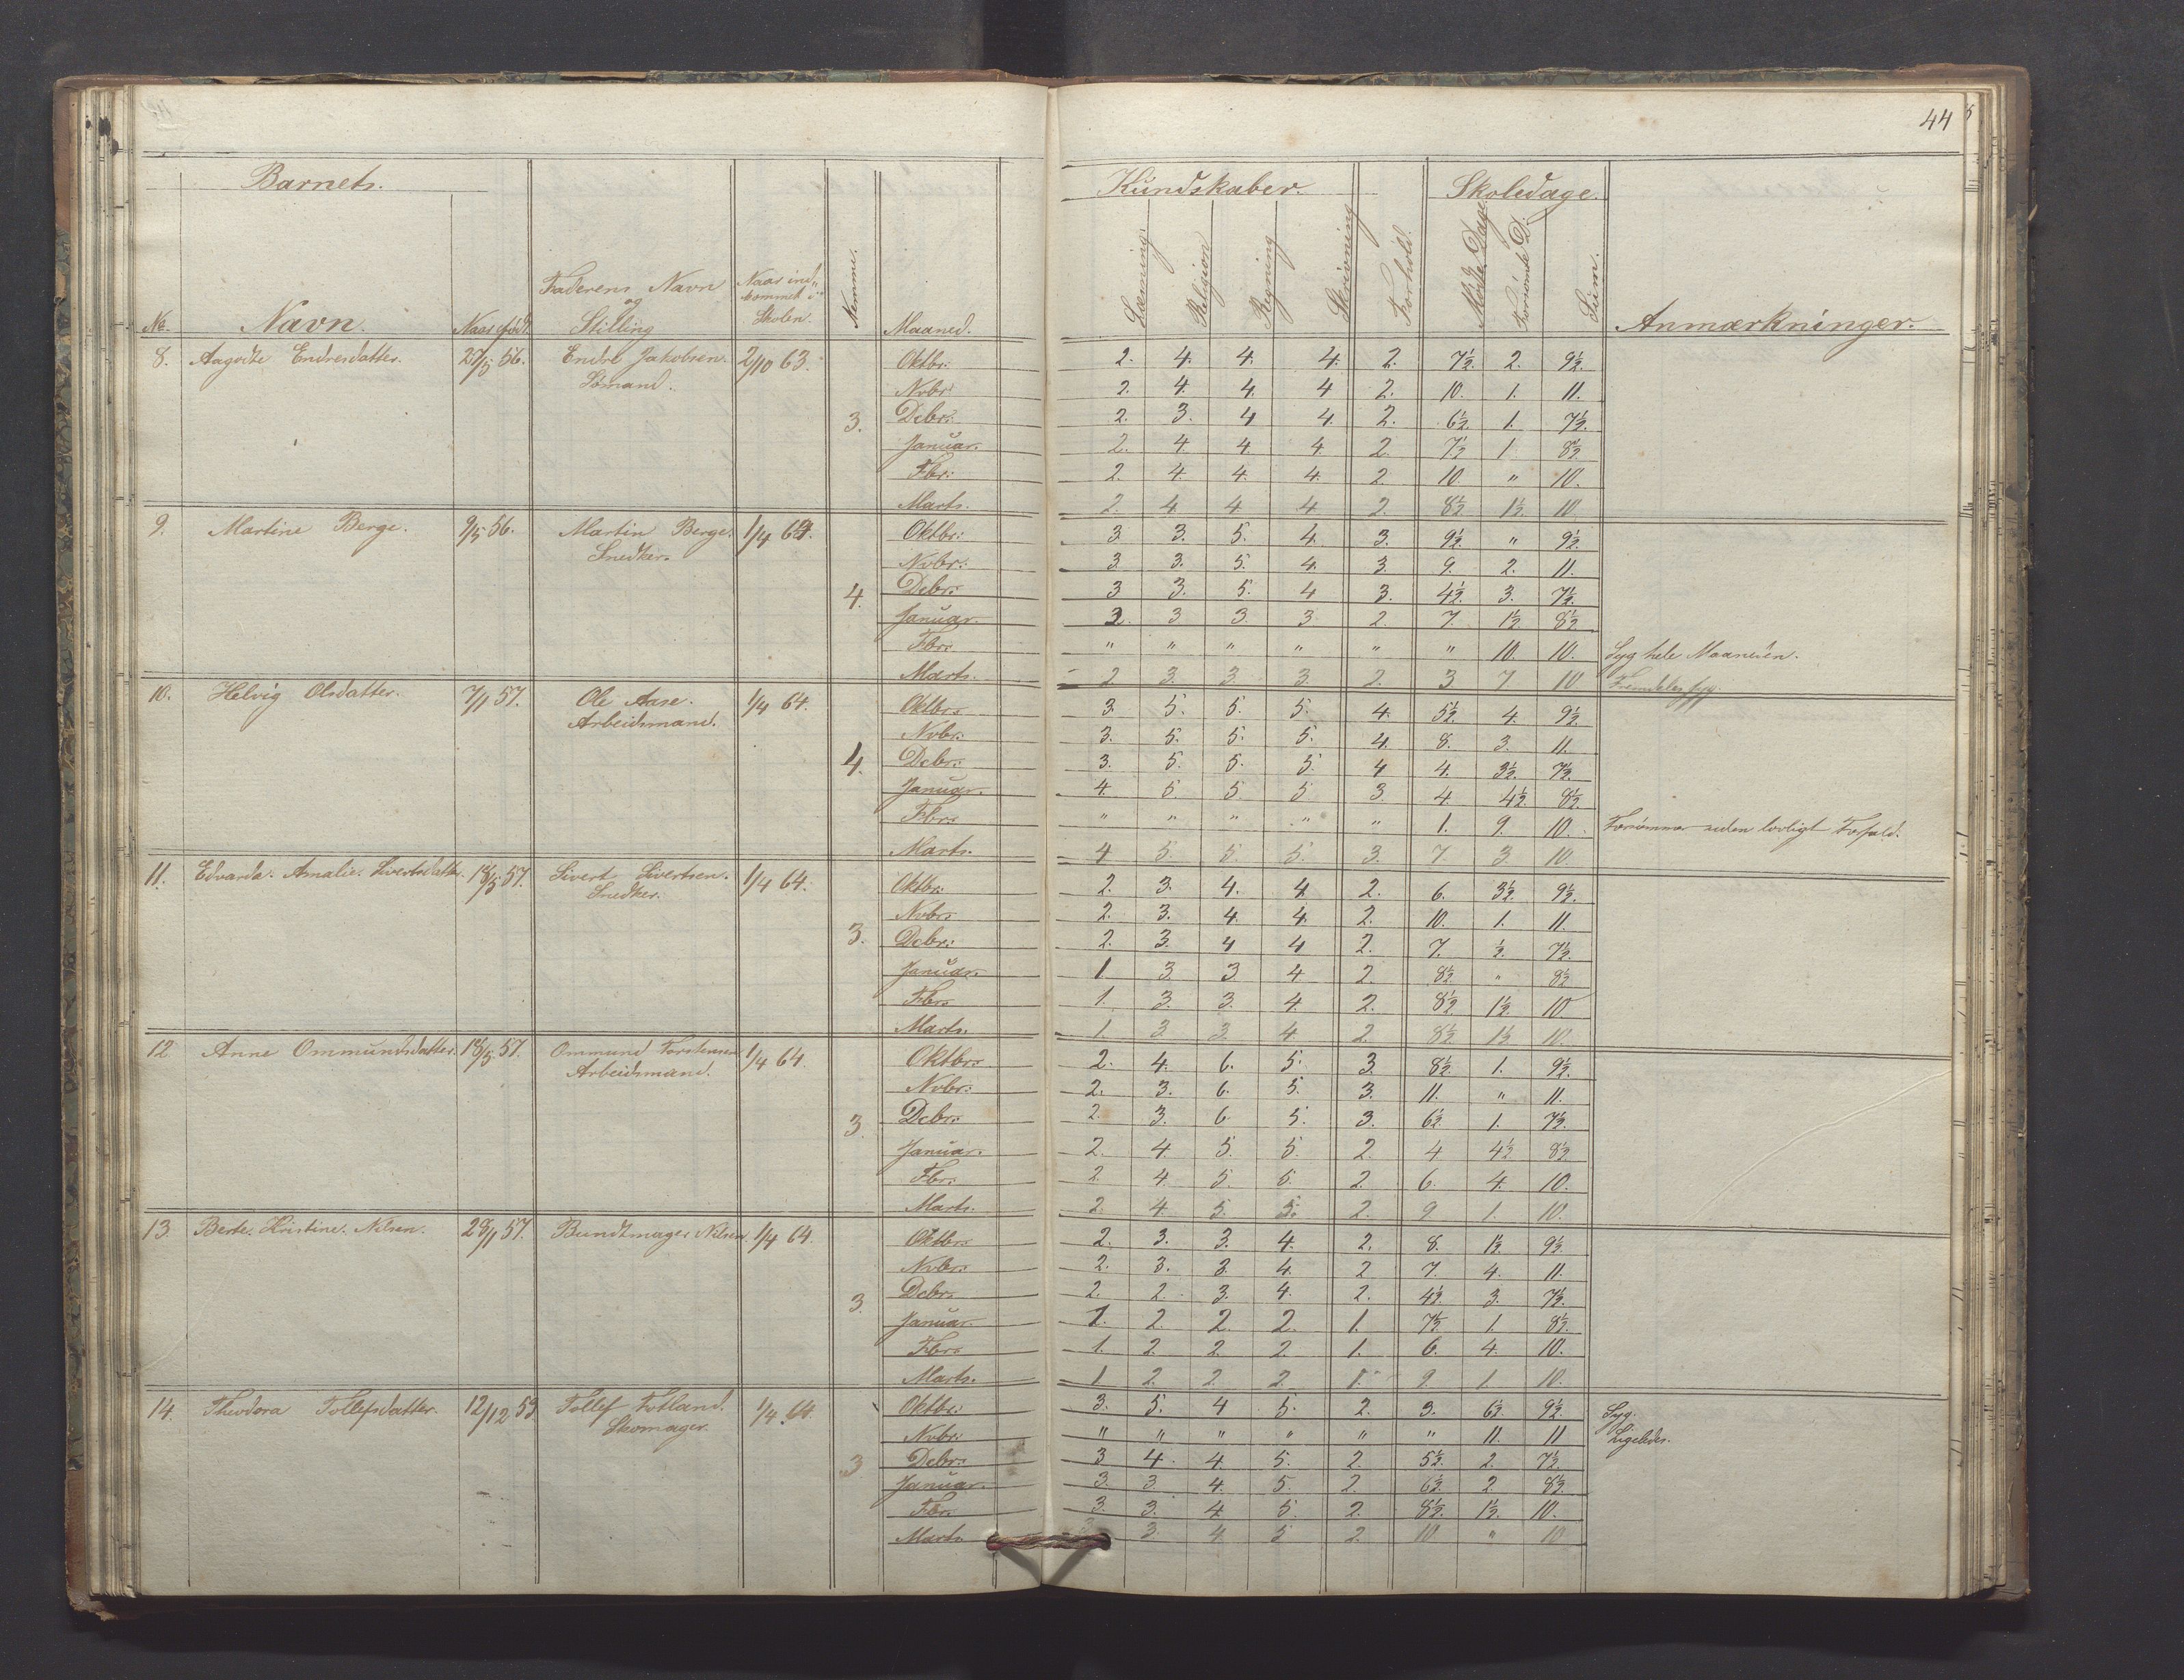 44
Barnets.
Kundskaber.
Skoledage.
No. Navn. Naar født Faderens Navn og Stilling Naar ind„ kommet i Skolen. Nemme. Maaned. Læsning. Religion Regning Skrivning Forhold. Mødte Dage Forsømte D. Sum. Anmærkninger.
8. Endresdatter. 5 56. Endre Jakobsen. Sømand. 2/10 63. 3.
Oktbr: 2. 4. 4. 4. 2. 7½. 2. 9½.
Nvbr: 2. 4. 4. 4 2. 10. 1. 11.
Dcbr: 2. 3. 4 4. 2. 6½. 1. 7½.
Januar. 2. 4. 4. 4. 2. 7½ 1 8½
Fbr: 2 4. 4. 4. 2 10 " 10.
Marts. 2. 4 4 4 2. 8½ 1½ 10
9. Martine Berge. 9/5 56. Martin Berge. Snedker. 1/4 64. 4.
Oktbr: 3 3. 5. 4. 3. 9½. " 9½.
Nvbr: 3 3. 5 4. 3 9. 2. 11.
Dcbr: 3 3. 5. 4 3. 4½. 3. 7½.
Januar. 2. 3 3. 3 2. 7. 1½. 8½
Fbr: " " " " " " 10. 10. Syg hele Maaneden.
Marts. 2 3. 3. 3. 2. 3 7 10 Fremdeles syg.
10. Helvig Olsdatter. 7/1 57. Ole Aase. Arbeidsmand. 1/4 64. 4.
Oktbr: 3. 5. 5. 5. 4. 5½ 4. 9½.
Nvbr: 3. 5. 5. 5. 4. 8. 3. 11.
Dcbr: 3. 5. 5. 5. 4 4. 3½. 7½.
Januar. 4. 5 5. 5 3. 4. 4½. 8½.
Fbr: " " " " " 1. 9. 10. Forsømmer uden lovligt Forfald.
Marts. 4 5. 5. 5. 3. 7. 3 10
11. Edvarda. Amalie. Sivertsdatter. 18/5 57. Sivert Sivertsen. Snedker. 1/4 64. 3.
Oktbr: 2. 3. 4. 4 2. 6. 3½. 9½.
Nvbr: 2. 3. 4. 4. 2. 10. 1. 11.
Dcbr: 2. 3. 4 4 2. 7. ½. 7½.
Januar. 1 3. 3 4 2. 8½. " 8½
Fbr: 1. 3. 3. 4. 2. 8½ 1½. 10
Marts. 1. 3 3. 4. 2 8½ 1½ 10.
12 Anne Ommundsdatter. 18/5 57. Ommund Torstensen Arbeidsmand. 1/4 64. 3.
Oktbr: 2. 4. 6. 5. 3 8½. 1. 9½.
Nvbr: 2. 3. 6. 5. 3. 11. " 11.
Dcbr: 2. 3. 6. 5. 3. 6½. 1. 7½.
Januar. 2. 4 5. 5. 2. 4 4½ 8½
Fbr: 2 4. 5. 5. 2. 6. 4. 10.
Marts. 2. 4. 5. 5. 2. 9. 1. 10.
13. Berte. Kristine. Nilsen. 28/1 57. Bundtmager Nilsen 1/4 64. 3.
Oktbr: 2. 3. 3. 4. 2. 8. 1½. 9½.
Nvbr: 2. 3. 3. 4. 2 7. 4. 11.
Dcbr: 2. 2. 3. 4. 2. 4½. 3. 7½.
Januar. 1. 2. 2. 2. 1. 7½. 1. 8½.
Fbr: 1. 2. 2. 2. 1. 6. 4. 10.
Marts. 1 2. 2. 2. 1. 9. 1. 10.
14. Theodora Tollefsdatter. 12/12 53 Tollef Fotland. Skomager. 1/4 64. 3
Oktbr: 3. 5. 4 5. 2. 3. 6½. 9½. Syg.
Nvbr: " " " " " " 11. 11 Ligeledes.
Dcbr: 3 4. 4 5. 2. 5½. 2. 7½.
Januar. 3. 3. 4. 5. 2. 6½ 2 8½.
Fbr. 3. 3. 4. 5. 2. 8½. 1½. 10.
Marts. 3. 4. 5 2. 10. " 10